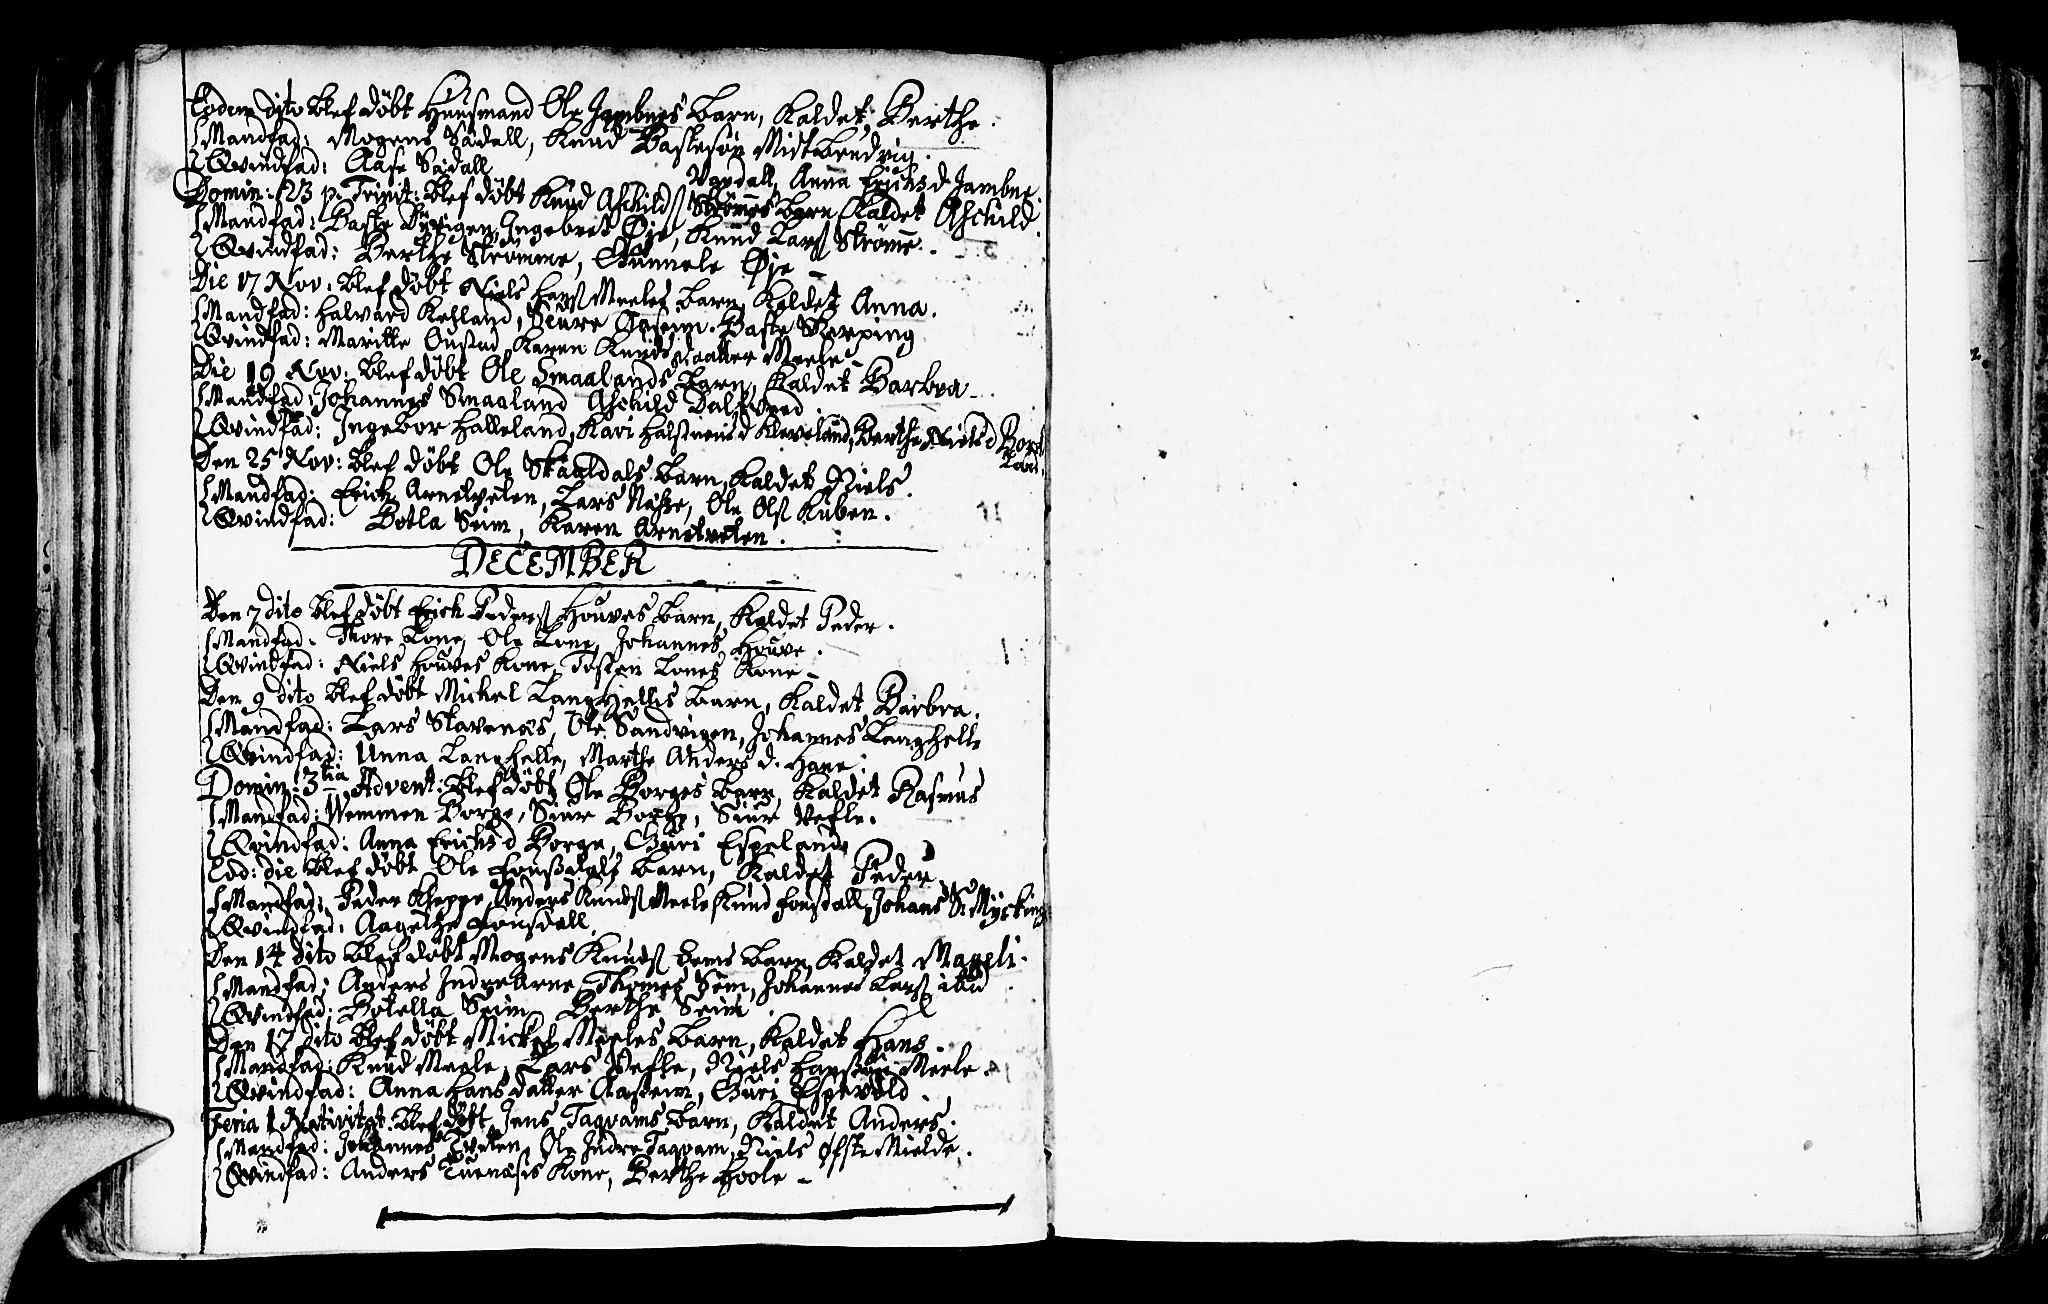 Eodem dito blef döbt Huusmand Ole Jambnes barn, kaldet Berthe.
Mandfad: Mogens Sædall, Knud Bastesøn Midtbendvig.
Qvindfad: Aase Sædall Vardall, Anna Erichs d. Jambne.
Domin: 23 p. Trinit: blef döbt Knud Aschilds Strömes barn kaldet Aschild.
Mandfad: Baste Ingebret Øje, Knud Lars Ströme.
Qvindfad: Berthe Strömme, Gunnele Øje
Die 17 Nov: blef döbt Niels Hans Meeles barn, kaldet Anna.
Mandfad: Halvard Kehland, Siure Aaseim. Baste Skerping
Qvindfad: Maritte Gustad, Karen Knuds daatter Meele
Die 19 Nov: blef döbt Ole Smaalands barn, kaldet Barbra
Mandfad: Johannes Smaaland Aschild Dalseved.
Qvindfad: Ingebor Halleland, Kari Halstens d Kleveland, Berthe Niels d Borst
land.
Den 25 Nov: blef döbt Ole Skaaldals barn, kaldet Niels.
Mandfad: Erich Arnetveten, Lars Næsse, Ole Ols Kuben.
Qvindfad: Botla Seim, Karen Arnetveten.
DECEMBER
Den 7 dito blef döbt Erich Peders Houves barn, kaldet Peder.
Mandfad. Thore Lone, Ole Lone, Johannes Houve.
Qvindfad: Niels Houves Kone, Tosten Lones Kone
Den 9 dito blef döbt Mickel Langhelles barn, kaldet Barbra.
Mandfad: Lars Stavenæs, Ole Sandvigen, Johannes Langhelle
Qvindfad: Anna Langhelle, Marthe Anders d. Hane.
Domin: 3tia Advent: blef döbt Ole Borges barn, kaldet Rasmus
Mandfad: Wemmen Borge, Siur Borge, Siur Vefle.
Qvindfad: Anna Erichs d Borge, Guri Espeland
Eod: die blef döbt Ole Fonsdals barn, kaldet Peder
Mandfad: Peder Kleppe, Anders Knuds Meele Knud Fonsdall, Johans S. Mycking
Qvindfad: Aagethe Fonsdall.
Den 14 dito blef döbt Mogens Knuds Seims barn, kaldet Mageli.
Mandfad: Anders Indrearne, Thomes Seim, Johannes Lars ibid
Qvindfad: Botella Seim, Berthe Seim.
Den 17 dito blef döbt Mickel Meeles barn, kaldet Hans.
Mandfad: Knud Meele, Lars Vefle, Niels Hansøn Meele.
Qvindfad: Anna Hans datter Aaseim, Guri Espevold.
Feria 1 Nativitat: blef döbt Jens Taqvams barn, kaldet Anders.
Mandfad: Johannes Tveten, Ole Indre Taqvam, Niels Øfste Mielde.
Qvindfad: Anders Tuenæsis Kone, Berthe Hoole